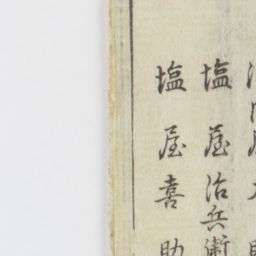 塩屋治兵衛
塩屋喜助